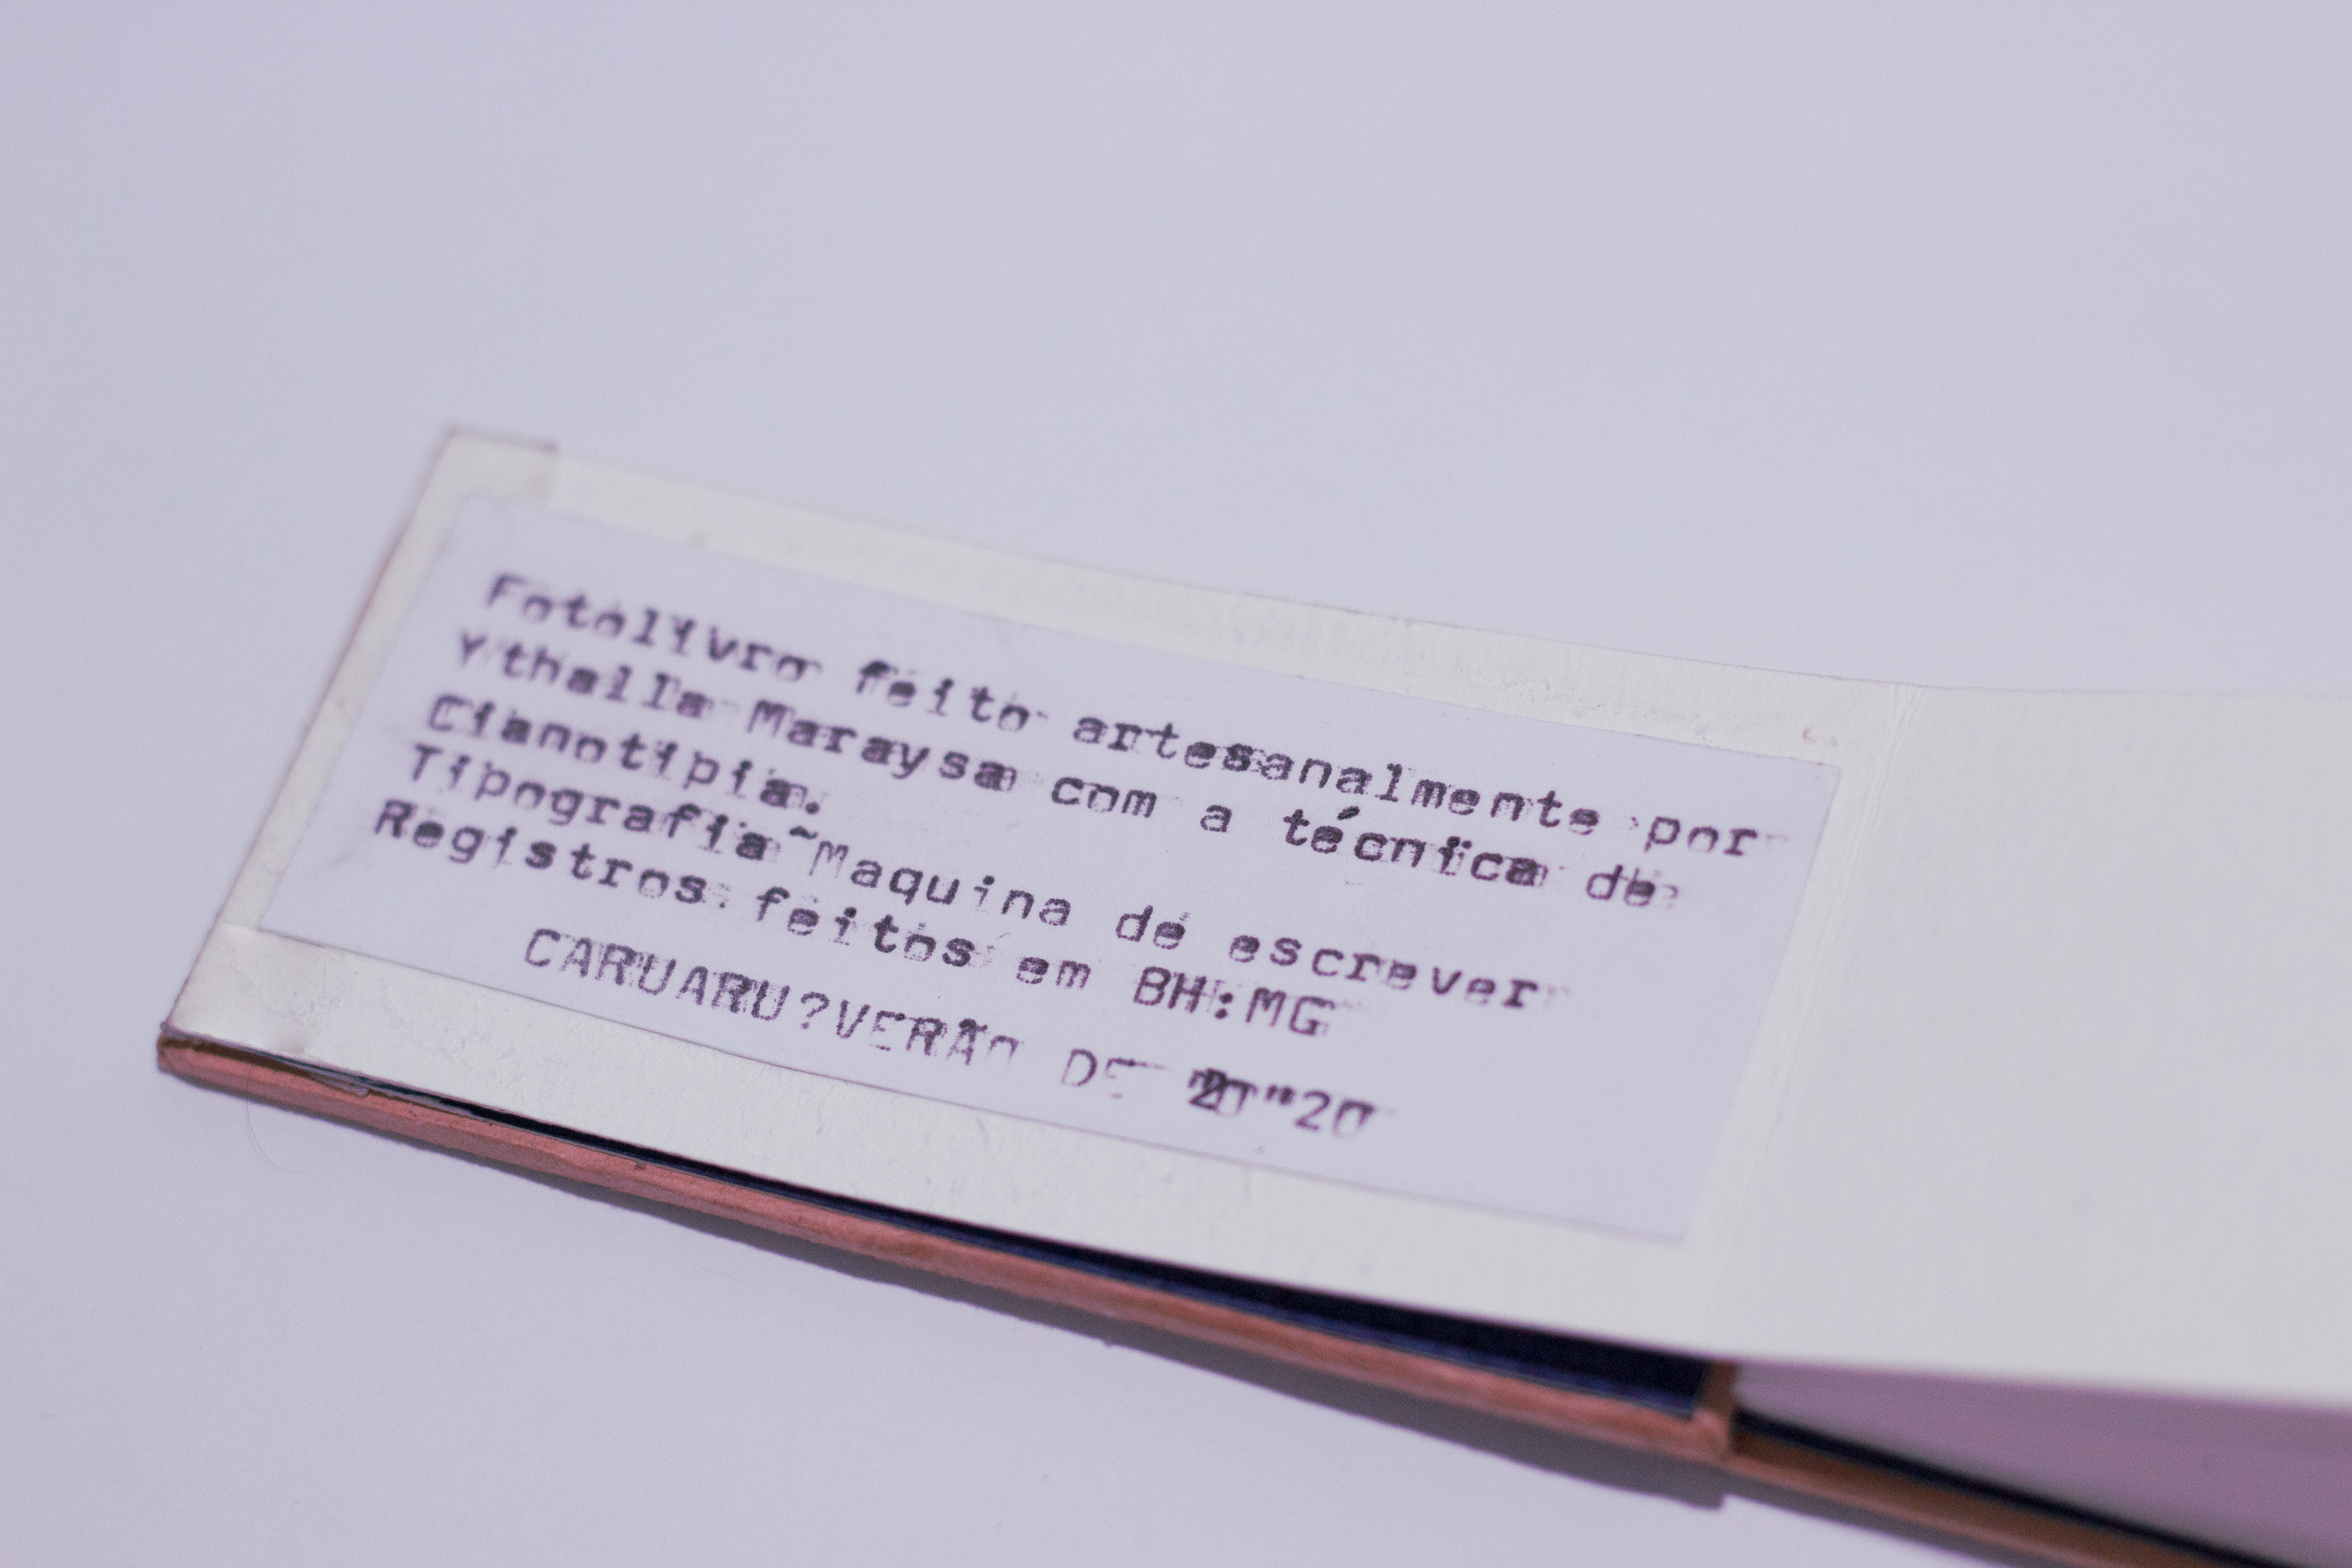 Fotolivro feito artesanalmente por
Ythalla Maraysa com a técnica de
Cianotipia.
Tipografia~Maquina dé escrever
Registros feitos em BH:MG
CARUARU?VERÃO DE "20